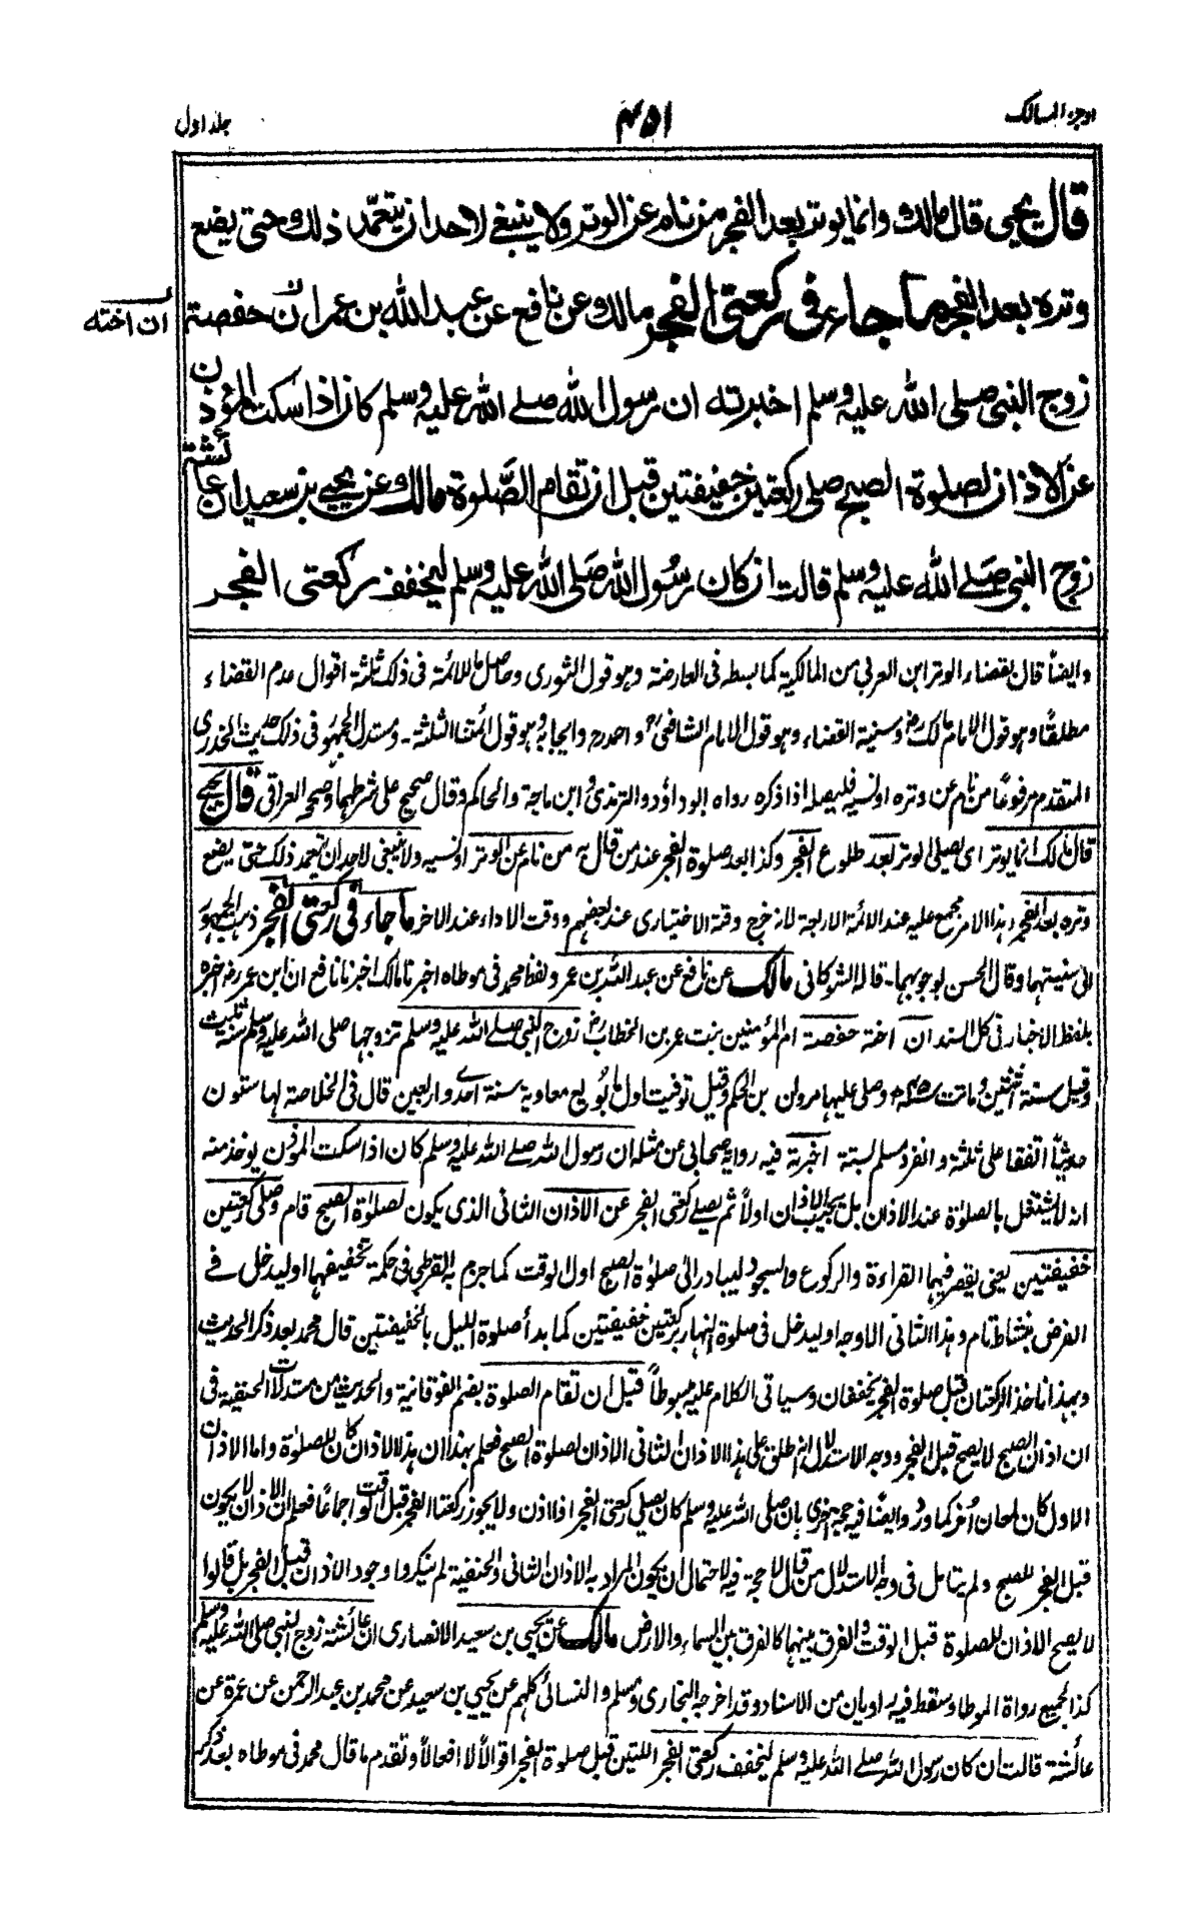 اوجز المسالك
٤٥١
جلد اول
قال يحيى قال مالك وانما يوتر بعد الفجر من نام عن الوتر ولا ينبغي لاحد ان يتعمد ذلك حتى يضع
وتره بعد الفجر ما جاء في ركعتي الفجر مالك عن نافع عن عبد الله بن عمر ان حفصة
ان اخته
زوج النبي صلى الله عليه وسلم اخبرته ان رسول الله صلے الله عليه وسلم كان اذا سكت المؤذن
عن الاذان لصلوة الصبح صلى ركعتين خفيفتين قبل ان تقام الصلوة مالك عن يحيى بن سعيد ان عائشة
زوج النبي صلے الله عليه وسلم قالت ان كان رسول الله صلى الله عليه وسلم ليخفف ركعتي الفجر
وايضاً قال بقضاء الوتر ابن العربي من المالكية كما بسطه في العارضة وهو قول الثوري وحاصل ما للائمة في ذلك ثلثة اقوال عدم القضاء
مطلقاً وهو قول الامام مالك وسنية القضاء وهو قول الامام الشافعي و احمد وايجابه وهو قول ائمتنا الثلثة - ومستدل الجمهور في ذلك حديث الخدري
المتقدم مرفوعاً من نام عن وتره او نسيه فليصله اذا ذكره رواه ابو داؤد والترمذي وابن ماجة والحاكم وقال صحيح على شرطهما وصححه العراقي قال يحيى
قال مالك انما يوتر اي يصلي الوتر بعد طلوع الفجر وكذا بعد صلوة الفجر عند من قال به من نام عن الوتر او نسيه ولا ينبغي لاحد ان يتعمد ذلك حتى يضع
وتره بعد الفجر وهذا الامر مجمع عليه عند الائمة الاربعة لانه خرج وقته الاختياري عند بعضهم ووقت الاداء عند الاخر ما جاء في ركعتي الفجر ذهب الجمهور
الى سنيتهما وقال الحسن بوجوبهما - قاله الشوكاني مالك عن نافع عن عبد الله بن عمر ولفظ محمد في موطاه اخبرنا مالك اخبرنا نافع ان ابن عمر اخبره
بلفظ الاخبار في كل السند ان اخته حفصة ام المؤمنين بنت عمر بن الخطاب زوج النبي صلے الله عليه وسلم تزوجها صلى الله عليه وسلم سنة ثلث
وقيل سنة ثنتين وماتت وصلى عليها مروان بن الحكم وقيل توفيت اول ما بويع معاوية سنة احدى واربعين قال في الخلاصة لها ستون
حديثاً اتفقا على ثلثة وانفرد مسلم بستة اخبرته فيه رواية صحابي عن مثله ان رسول الله صلے الله عليه وسلم كان اذا سكت المؤذن يوخذ منه
انه لا يشتغل بالصلوة عند الاذان بل يجيب الاذان اولاً ثم يصلے ركعتي الفجر عن الاذان الثاني الذي يكون لصلوة الصبح قام وصلى ركعتين
خفيفتين يعني يقصر فيهما القراءة والركوع والسجود ليبادر الى صلوة الصبح اول الوقت كما جزم به القرطبي في حكمة تخفيفهما او ليدخل في
الفرض بنشاط تام وهذا الثاني الاوجه او ليدخل في صلوة النهار بركعتين خفيفتين كما بدأ صلوة الليل بالخفيفتين قال محمد بعد ذكر الحديث
وبهذا ناخذ الركعتان قبل صلوة الفجر يخففان وسياتي الكلام عليه مبسوطاً قبل ان تقام الصلوة بضم الفوقانية والحديث من مستدلات الحنفية في
ان اذان الصبح لا يصح قبل الفجر ووجه الاستدلال انه اطلق على هذا الاذان الثاني الاذان لصلوة الصبح فعلم بهذا ان هذا الاذان كان للصلوة واما الاذان
الاول كان لمعان أخر كما ورد وايضاً فيه حجة اخرى بان صلى الله عليه وسلم كان يصلي ركعتي الفجر اذا اذن ولا يجوز ركعتا الفجر قبل الوقت اجماعاً فعلم ان الاذان لا يكون
قبل الفجر للصبح ولم يتامل في وجه الاستدلال من قال لا حجة فيه لاحتمال ان يكون المراد به الاذان الثاني والحنفية لم ينكروا وجود الاذان قبل الفجر بل قالوا
لا يصح الاذان للصلوة قبل الوقت والفرق بينهما كالفرق بين السماء والارض مالك عن يحيى بن سعيد الانصاري ان عائشة زوج النبي صلى الله عليه وسلم
كذا لجميع رواة الموطا وسقط فيه راويان من الاسناد وقد اخرجه البخاري ومسلم والنسائي كلهم عن يحيى بن سعيد عن محمد بن عبد الرحمن عن عمرة عن
عائشة قالت ان كان رسول الله صلے الله عليه وسلم ليخفف ركعتي الفجر اللتين قبل صلوة الفجر اقوالاً لا افعالاً وتقدم ما قال محمد في موطاه بعد ذكر